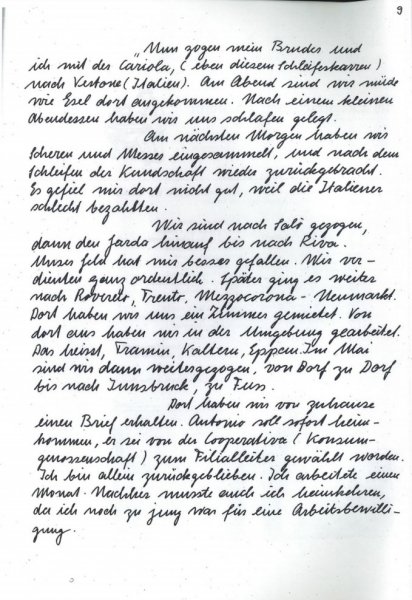 9
„Nun zogen mein Bruder und
ich mit der Cariola, (eben diesem Schleiferkarren)
nach Vestone (Italien). Am Abend sind wir müde
wie Esel dort angekommen. Nach einem kleinen
Abendessen haben wir uns schlafen gelegt.
Am nächsten Morgen haben wir
Scheren und Messer eingesammelt, und nach dem
Schleifen der Kundschaft wieder zurückgebracht.
Es gefiel mir dort nicht gut, weil die Italiener
schlecht bezahlten.
Wir sind nach Salò gezogen,
dann den Garda hinauf bis nach Riva.
Unser Feld hat mir besser gefallen. Wir ver-
dienten ganz ordentlich. Später ging es weiter
nach Rovereto, Trento, Mezzocorona - Neumarkt.
Dort haben wir uns ein Zimmer gemietet. Von
dort aus haben wir in der Umgebung gearbeitet.
Das heisst, Tramin, Kaltern, Eppan. Im Mai
sind wir dann weitergezogen, von Dorf zu Dorf
bis nach Innsbruck, zu Fuss.
Dort haben wir von zuhause
einen Brief erhalten. Antonio soll sofort heim-
kommen, er sei von der Cooperativa (Konsum-
genossenschaft) zum Filialleiter gewählt worden.
Ich bin allein zurückgeblieben. Ich arbeitete einen
Monat. Nachher musste auch ich heimkehren,
da ich noch zu jung war für eine Arbeitsbewilli-
gung.